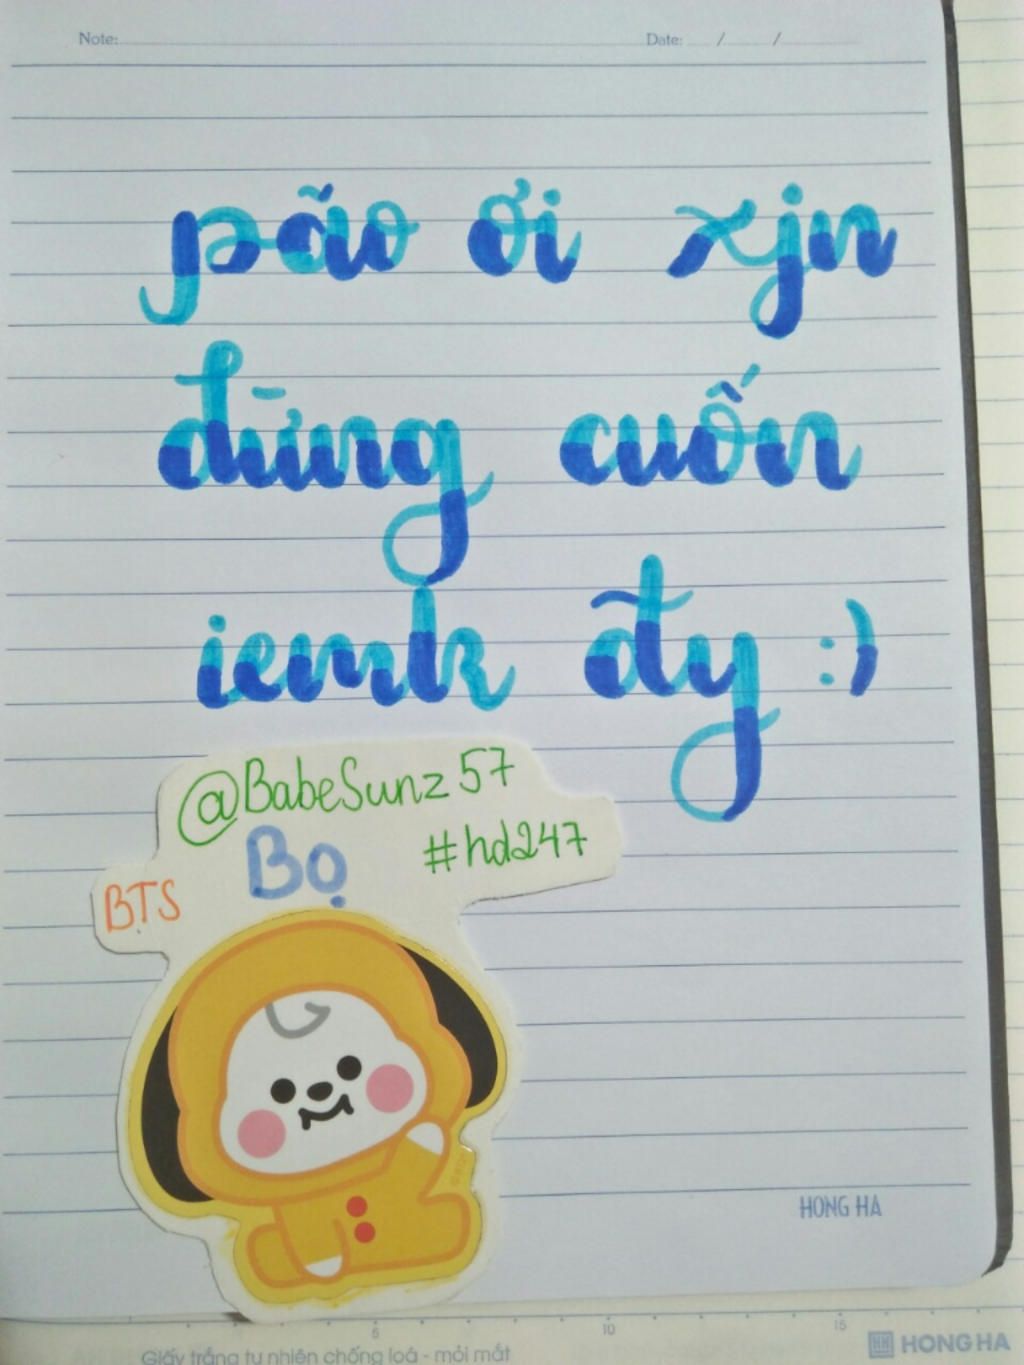 Note:
Date: / /
pão ơi xjn
đừng cuốn
iemk đy :)
@BabeSunz57
#hd247
Bọ
BTS
HONG HA
5 10 15
Giấy trắng tự nhiên chống loá - mỏi mắt
HONG HA